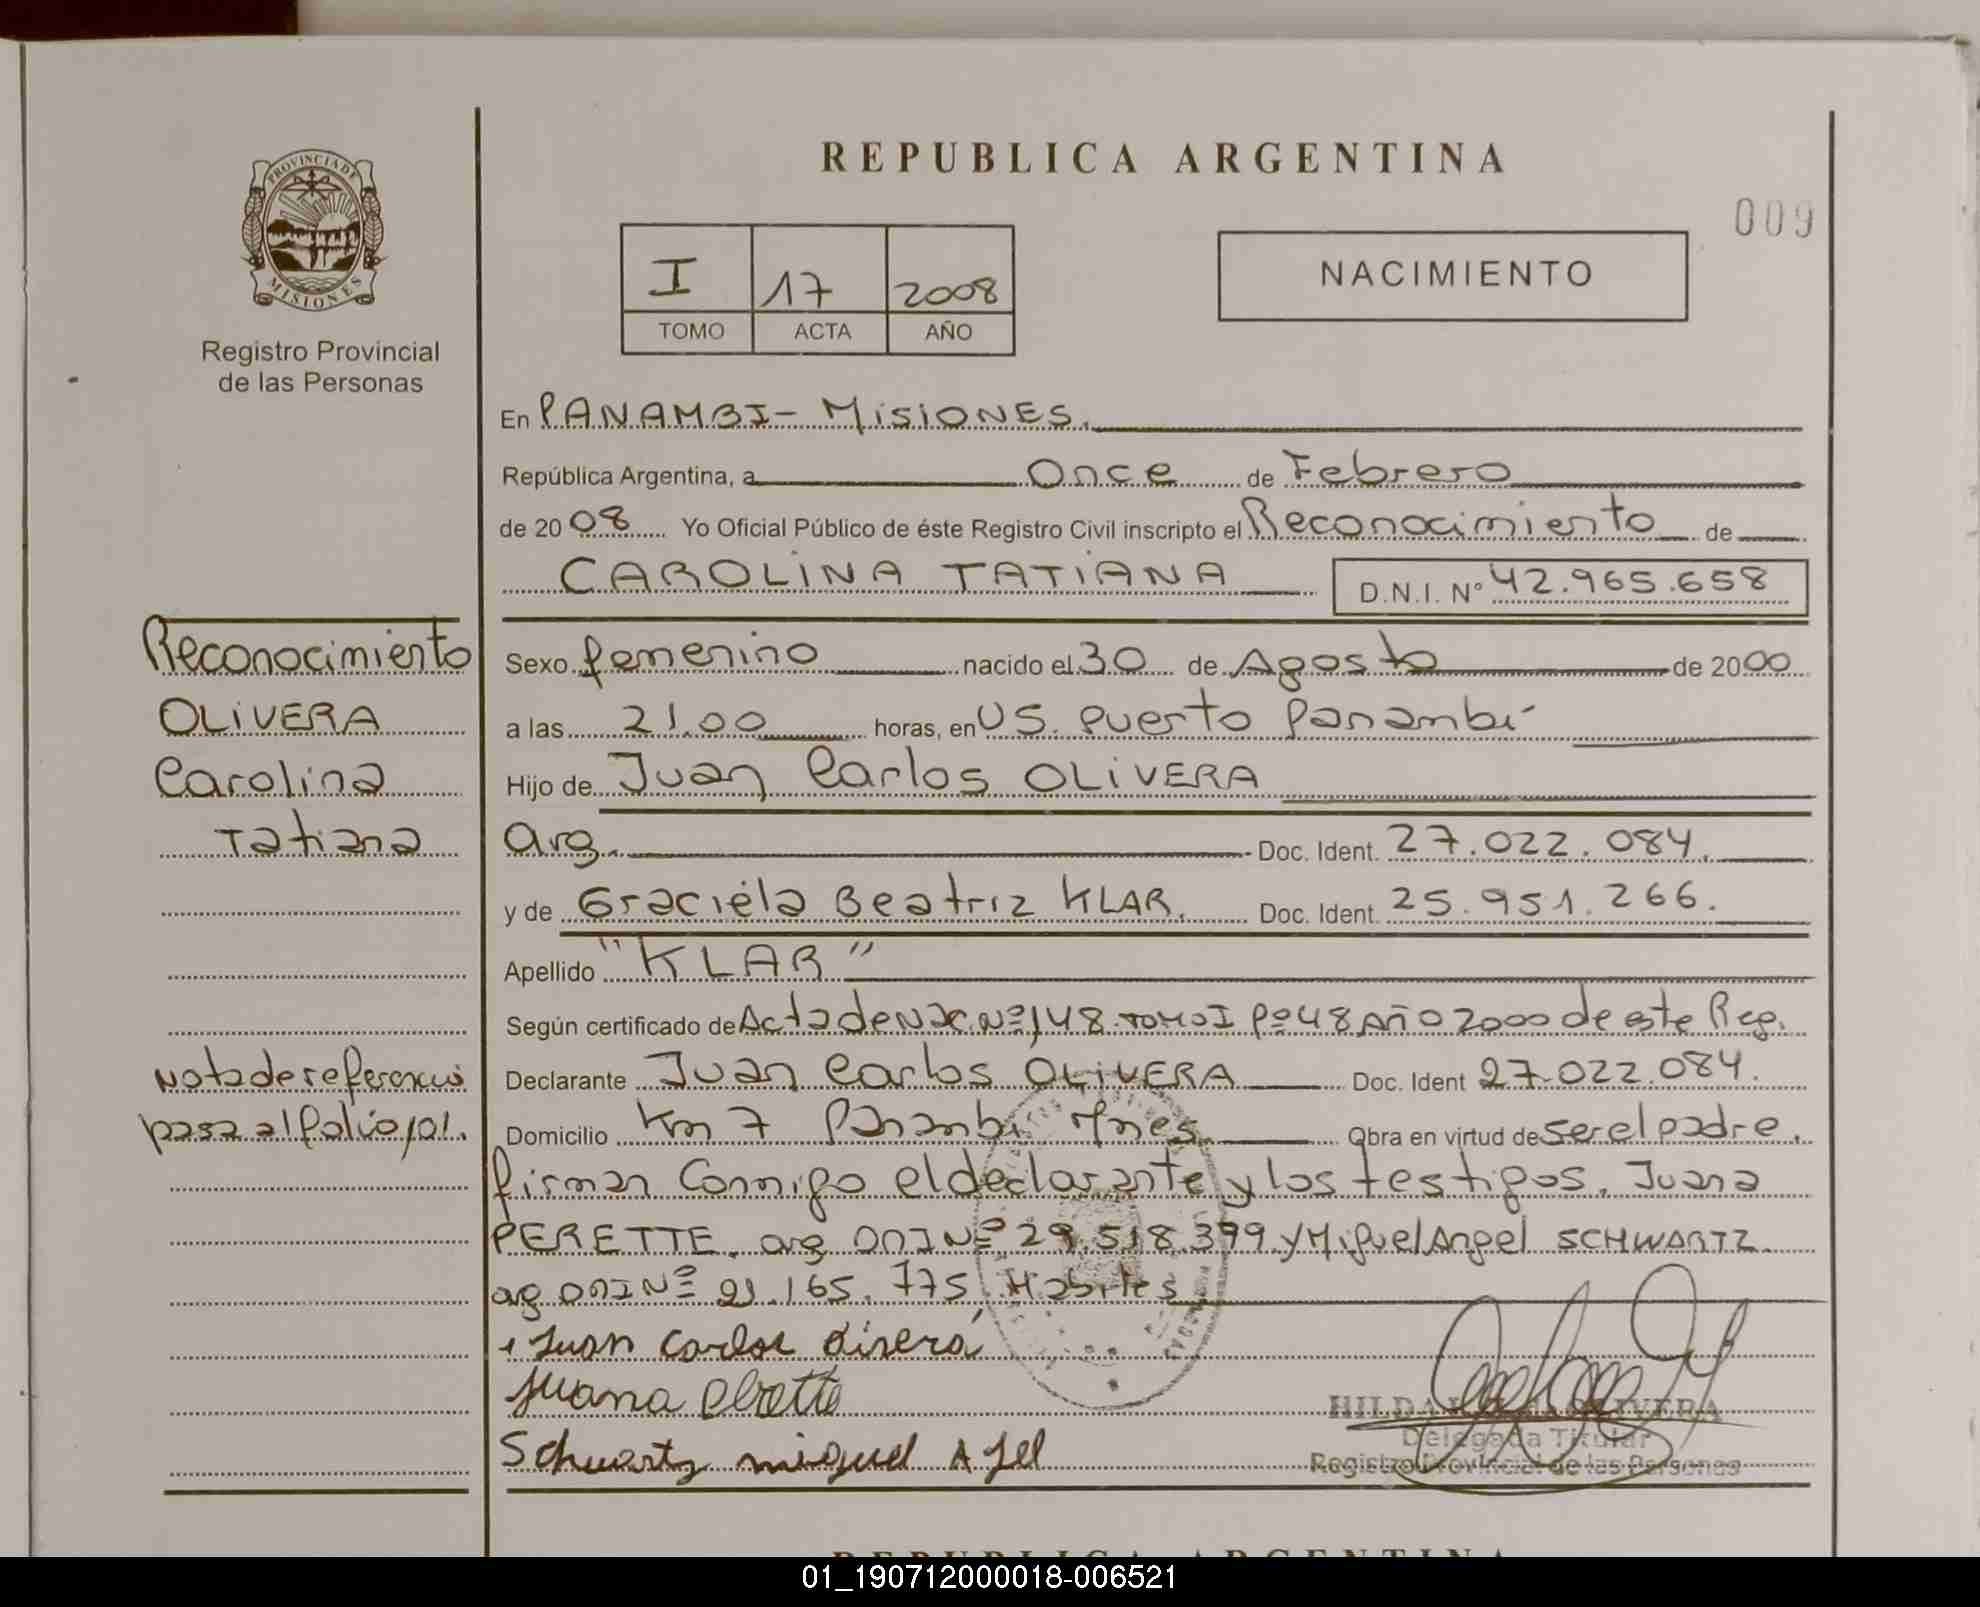 REPUBLICA ARGENTINA
009
PROVINCIA DE
MISIONES
Registro Provincial
de las Personas
I 17 2008
TOMO ACTA AÑO
NACIMIENTO
En PANAMBI - MISIONES.
República Argentina, a Once de Febrero
de 2008 Yo Oficial Público de éste Registro Civil inscripto el Reconocimiento de
CAROLINA TATIANA D.N.I. Nº 42.965.658
Reconocimiento
OLIVERA
Carolina
Tatiana
Nota de referencia
pasa al folio 101.
Sexo femenino nacido el 30 de Agosto de 2000
a las 21.00 horas, en U.S. Puerto Panambí
Hijo de Juan Carlos OLIVERA
Arg. Doc. Ident. 27.022.084.
y de Graciela Beatriz KLAR. Doc. Ident. 25.951.266.
Apellido "KLAR"
Según certificado de Acta de Nac. Nº 148. TOMO I Fº 48 AÑO 2000 de este Reg.
Declarante Juan Carlos OLIVERA Doc. Ident 27.022.084.
Domicilio Km 7 Panambí Mnes. Obra en virtud de ser el padre.
firman conmigo el declarante y los testigos, Juana
PERETTE, arg DNI Nº 29.518.399 y Miguel Angel SCHWARTZ
ag DNI Nº 21.165.775, Habiles
Juan Carlos Olivera
Juana Perette
Schwartz miguel A
HILDA OLIVERA
Delegada Titular
Registro Provincial de las Personas
REPUBLICA ARGENTINA
01_190712000018-006521